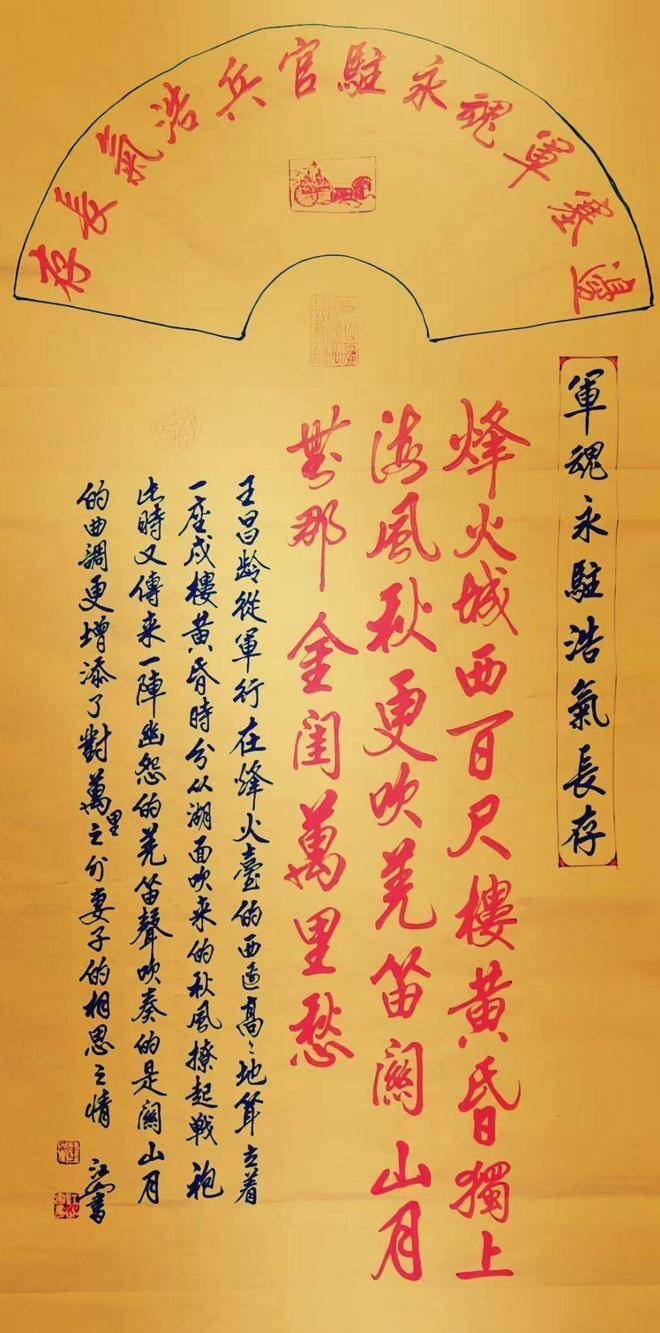 邊塞軍魂永駐官兵浩氣長存
軍魂永駐浩氣長存
烽火城西百尺樓黃昏獨上
海風秋更吹羌笛關山月
無那金閨萬里愁
王昌龄從軍行在烽火臺的西邊高々地耸立着
一座戍樓黃昏時分从湖面吹来的秋風撩起戰袍
此時又傳来一陣幽怨的羌笛聲吹奏的是關山月
的曲調更增添了對萬里之外妻子的相思之情
書